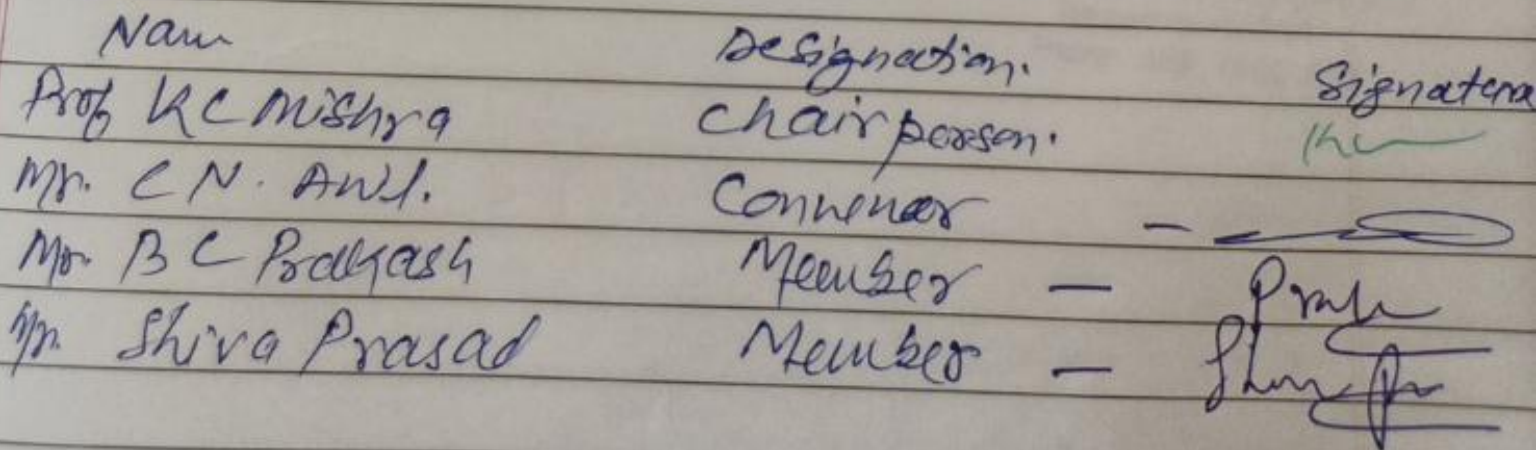 Name Designation. Signature
Prof K C Mishra Chairperson.
Mr. C N. Convenor -
Mr. B C Prakash Member -
Mr. Shiva Prasad Member -